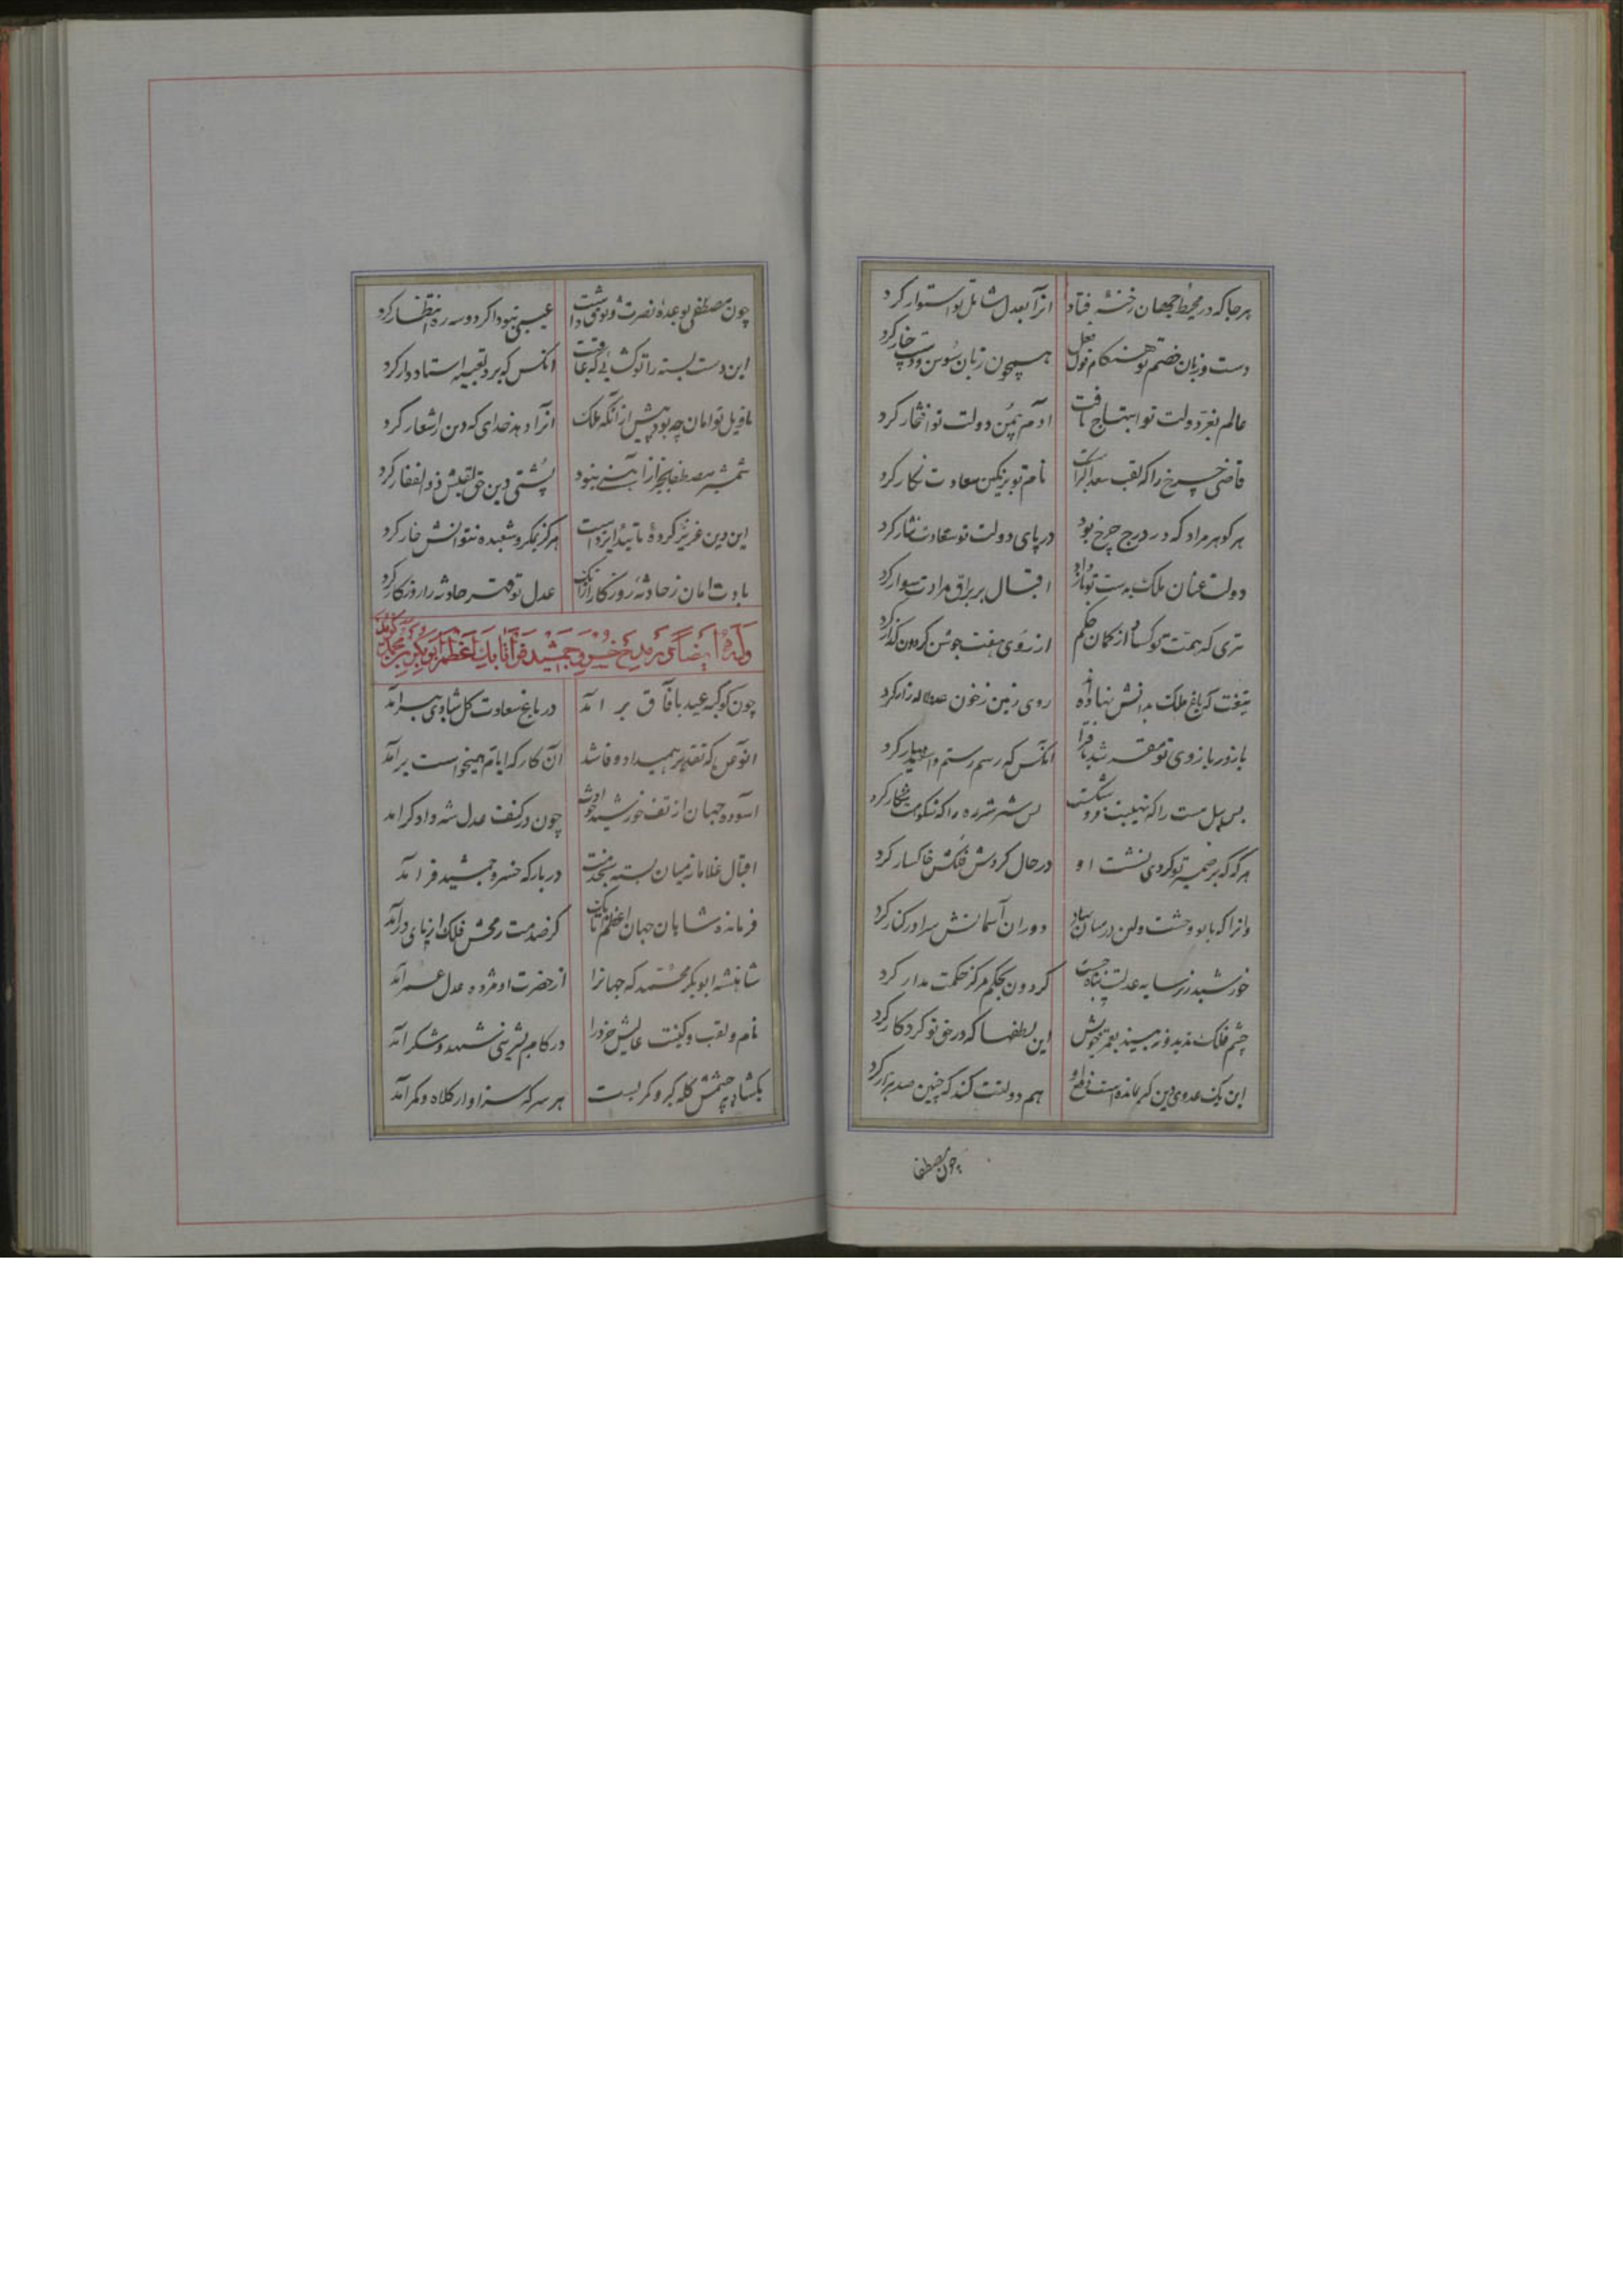 هر جا که در محیط جهان رخنه فتاد انرا بعدل شامل تو استوار کرد
دست و زبان خصم تو هنگام قول فعل همچون زبان سوسن و دست چنار کرد
عالم بعز دولت تو ابتهاج یافت ادم بیمن دولت تو افتخار کرد
قاضی چرخ را که لقب سعد اکبر است نام تو بر نگین سعادت نگار کرد
هر گوهر مراد که در درج چرخ بود در پای دولت تو سعادت نثار کرد
دولت عنان ملک بدست تو باز داد اقبال بر براق مرادت سوار کرد
تیری که همت تو گشاد از کمان حکم از روی هفت جوشن گردون گذار کرد
تیغت که باغ ملک روی زمین ز خون عدو لاله زار کرد
با زور بازوی تو انکس که رسم رستم و اسفندیار کرد
بس پیل مست را که نهیبت فرو شکست بس شیر شرزه را که شکوهت شکار کرد
هر گه که بر ضمیر تو گردی نشست او در حال گردش فلکش خاکسار کرد
وانرا که با تو وحشت دوران آسمانش سر اندر کنار کرد
خورشید زیر سایه عدلت پناه جست گردون بحکم مرکز حکمت مدار کرد
چشم فلک ندید و نه بیند بعمر خویش این لطفها که در حق تو کردگار کرد
این یک عدوی دین که بمانده است هم دولتت کند که چنین صد هزار کرد
چون مصطفی
چون مصطفی بوعده نصرت وثوق داشت عیبی نبود اگر دو سه ره انتظار کرد
این دست بسته را تو گشائی که عاقبت انکس که برد تعبیه استاد دار کرد
انرا دهد خدای که دین را شعار کرد
شمشیر مصطفی بجز از آهنی نبود پشتی دین حق لقبش ذوالفقار کرد
این دین عزیز کردهٔ تایید ایزد است هرگز بمکر و شعبده نتوانش خوار کرد
بادت امان ز حادثه روزگار از انک عدل تو قهر حادثه را روزگار کرد
وله ایضا فی مدح خسرو جمشید فر اتابک اعظم ابوبکر بن محمد گوید
چون کوکبه عید بافاق بر امد در باغ سعادت گل شادی ببر امد
ان کار که ایام همیخواست برامد
آسوده جهان از تف خورشید حوادث چون در کنف عدل شه دادگر امد
اقبال غلامانه میان بسته بخدمت در بارگه خسرو جمشید فر امد
فرمانده شاهان جهان اعظم اتابک کز صدمت رمحش فلک از پای درامد
شاهنشه ابوبکر محمد که جهانرا از حضرت او مژده عدل عمر امد
نام و لقب و کنیت عالیش خرد را در کام بشیرینی شهد و شکر امد
بگشاد ز چشمش کله کبر و کمر بست هر سر که سزاوار کلاه و کمر امد